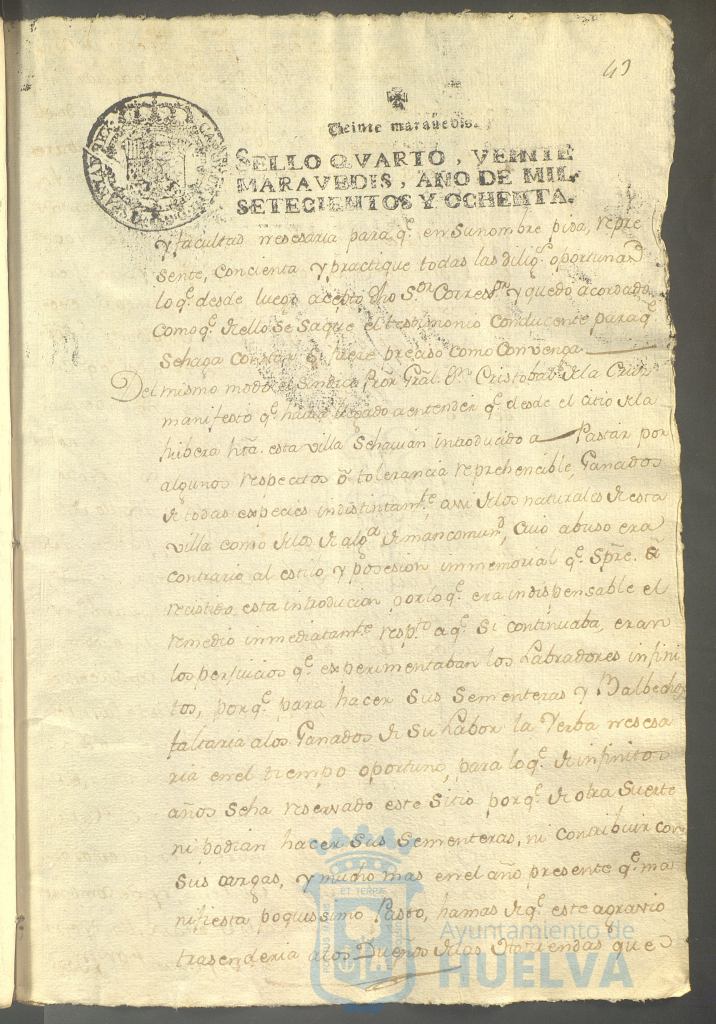 43
Veinte maravedis.
SELLO QVARTO, VEINTE
MARAVEDIS, AÑO DE MIL
SETECIENTOS Y OCHENTA.
y facultad nesesaria para q.e en su nombre pida, repre
sente, concienta y practique todas las dilig.s oportunas
lo q.e desde luego acepto dho S.or Corres.or y quedo acordado
como q.e de ello se saque el testimonio conducente para q.e
se haga constar q.e fuere preciso como convenga
Del mismo modo el Sindico Pror Gral D.n Cristobal de la
manifesto q.e havia llegado a entender q.e desde el citio de la
Ribera hta. esta villa se havian introducido a Pastar por
algunos respectos ô tolerancia reprehencible, Ganados
de todas especies indistintam.te assi de los naturales de esta
villa como de los de alg.a de mancomun.d, cuio abuso era
contrario al estilo, y posesion immemorial q.e Spre. ha
recistido esta introducion por lo q.e era indispensable el
remedio inmediatam.te resp.to a q.e si continuaba, eran
los perjuicios q.e experimentaban los Labradores infini
tos, porq.e para hacer sus sementeras y Balbechos
faltaria a los Ganados de su Labor la Yerba nesesa
ria en el tiempo oportuno, para lo q.e de infinitos
años se ha reservado este sitio porq.e de otra suerte
ni podian hacer sus sementeras, ni contribuir con
sus cargas, y mucho mas en el año presente q.e ma
nifiesta poquissimo Pasto, hamas de q.e este agravio
trasenderia a los Dueños de las que
Ayuntamiento de
HUELVA